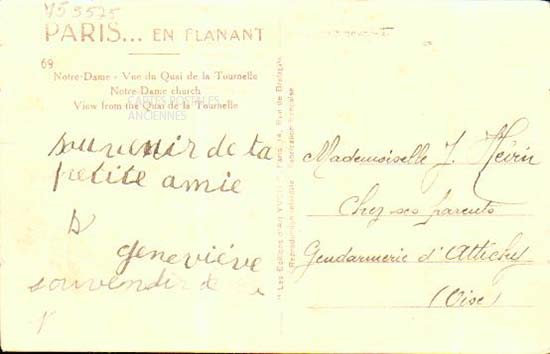 Y53525
PARIS... EN FLANANT
69
Notre-Dame - Vue du Quai de la Tournelle
Notre-Dame church
View from the Quai de la Tournelle
CARTES POSTALES
ANCIENNES
souvenir de ta
petite amie
geneviéve
souvendir d
Les Editions d'Art YVON Paris, Rue de Bretagne
Reproduction interdite Fabrication française
Mademoiselle J.
Chez ses parents
Gendarmerie d'Attichy
(Oise)